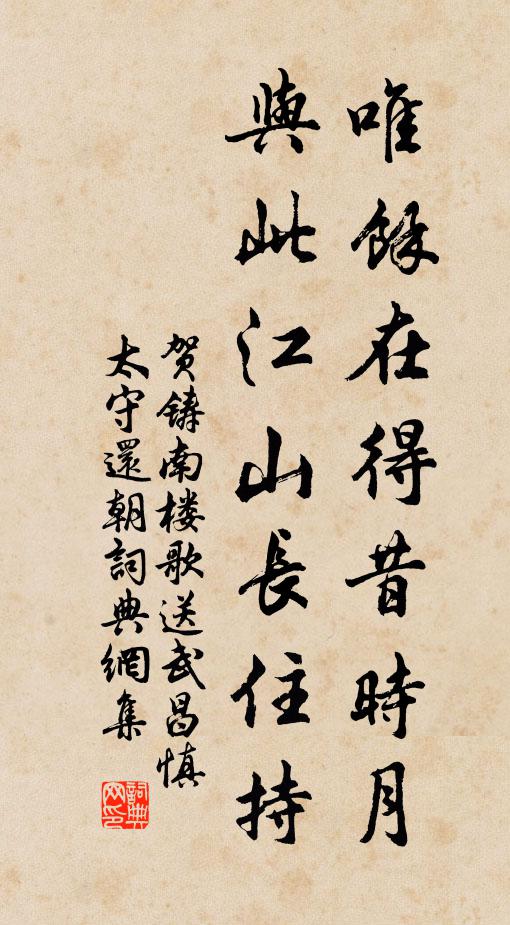 唯餘在得昔時月
與此江山長住持
贺鑄南楼歌送武昌慎
太守還朝詞典網集
詞典网印